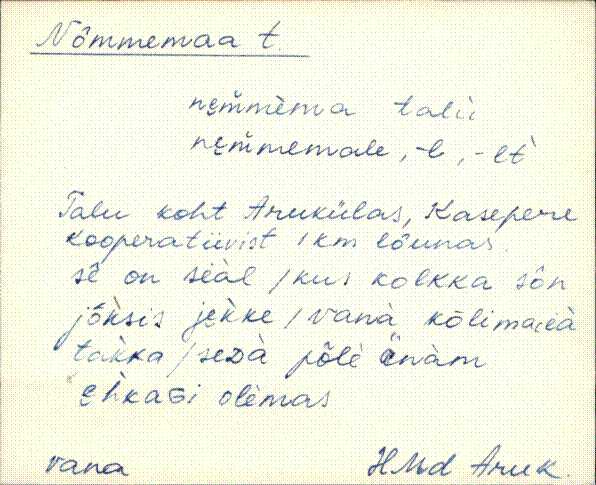 Nõmmemaa t.
nęm̆mèma talù
nęm̆memale, -l, -lt
Talu koht Arukülas, Kasepere
kooperatiivist 1 km lõunas.
sè on sèàl / kus kolkka sôn
jôksis jękke / vanà kõlimajà
takka / seDà põlè änàm
ęhkaGi olèmas
vana HMd Aruk.